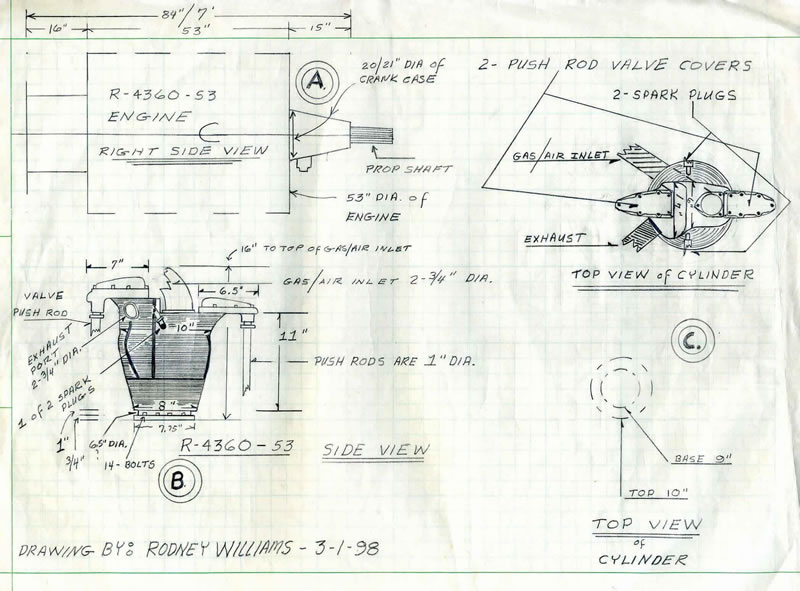 84"/7'
16" 53" 15"
A.
20/21" DIA of
CRANK CASE
R-4360-53
ENGINE
RIGHT SIDE VIEW
PROP SHAFT
53" DIA. of
ENGINE
2- PUSH ROD VALVE COVERS
2-SPARK PLUGS
GAS/AIR INLET
EXHAUST
TOP VIEW of CYLINDER
16" TO TOP of GAS/AIR INLET
7"
GAS/AIR INLET 2-3/4" DIA.
6.5"
VALVE
PUSH ROD
10"
11"
EXHAUST
PORT
2-3/4" DIA.
PUSH RODS ARE 1" DIA.
1 of 2 SPARK
PLUGS
8"
7.75"
1"
3/4"
65" DIA.
?
14-BOLTS
R-4360-53 SIDE VIEW
B.
C.
BASE 9"
TOP 10"
TOP VIEW
of
CYLINDER
DRAWING BY: RODNEY WILLIAMS - 3-1-98